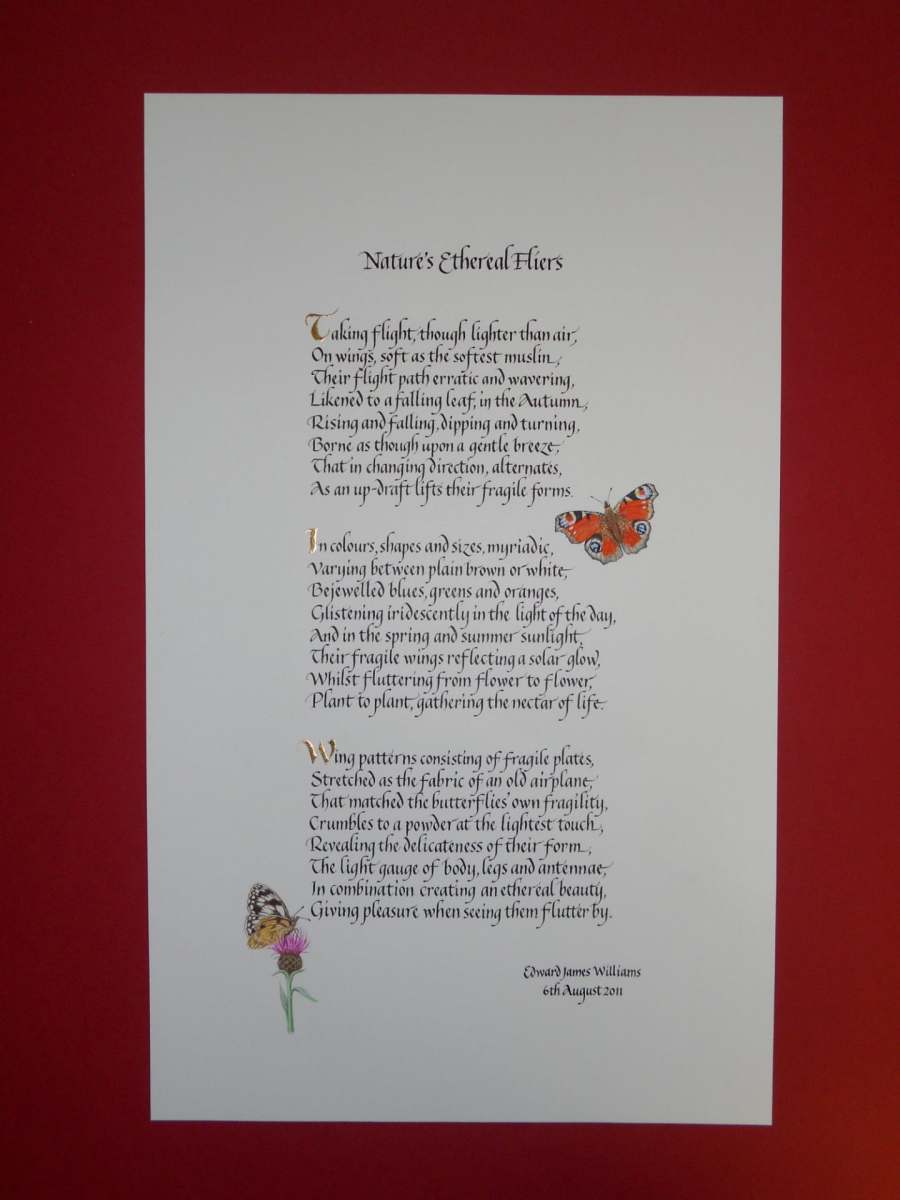 Nature's Ethereal Fliers
Taking flight, though lighter than air,
On wings, soft as the softest muslin,
Their flight path erratic and wavering,
Likened to a falling leaf, in the Autumn,
Rising and falling, dipping and turning,
Borne as though upon a gentle breeze,
That in changing direction, alternates,
As an up-draft lifts their fragile forms.
In colours, shapes and sizes, myriadic,
Varying between plain brown or white,
Bejewelled blues, greens and oranges,
Glistening iridescently in the light of the day,
And in the spring and summer sunlight,
Their fragile wings reflecting a solar glow,
Whilst fluttering from flower to flower,
Plant to plant, gathering the nectar of life.
Wing patterns consisting of fragile plates,
Stretched as the fabric of an old airplane,
That matched the butterflies' own fragility,
Crumbles to a powder at the lightest touch,
Revealing the delicateness of their form,
The light gauge of body, legs and antennae,
In combination creating an ethereal beauty,
Giving pleasure when seeing them flutter by.
Edward James Williams
6th August 2011